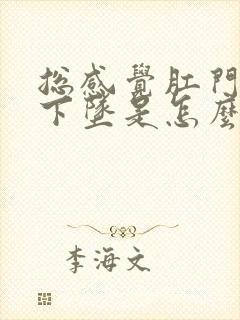 總感覺肛門
下墜是怎麼
李海文